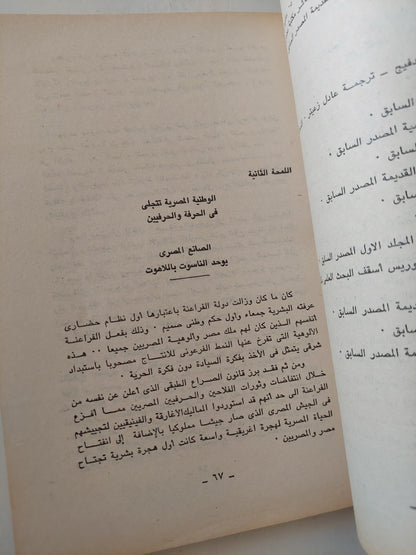 اللمحة الثانية
الوطنية المصرية تتجلى
فى الحرفة والحرفيين
الصانع المصرى
يوحد الناسوت باللاهوت
كان ما كان وزالت دولة الفراعنة باعتبارها أول نظام حضارى
عرفته البشرية جمعاء وأول حكم وطنى صميم ٠ وذلك بفعل الفراعنة
أنفسهم الذين كان لهم ملك مصر وألوهية المصريين جميعا ٠٠ هذه
الألوهية التى تفرخ عنها النمط الفرعونى للانتاج مصحوبا باستبداد
شرقى يتمثل فى الأخذ بفكرة السيادة دون فكرة الحرية ٠
ومن ثم فقد برز قانون الصراع الطبقى الذى أعلن عن نفسه من
خلال انتفاضات وثورات الفلاحين والحرفيين المصريين مما أفزع
الفراعنة الى حد أنهم قد استوردوا المماليك الأغارقة والفينيقيين لتجييشهم
فى الجيش المصرى الذى صار جيشا مملوكيا بالإضافة إلى انفتاح
الحياة المصرية لهجرة اغريقية واسعة كانت أول هجرة بشرية تجتاح
مصر والمصريين ٠
— ٦٧ —
ترجمة عادل زعيتر
السابق ٠
المصدر السابق ٠
السابق ٠
القديمة المصدر السابق ٠
السابق ٠
المجلد الاول المصدر السابق
وريس أسقف البحث
قديمة المصدر السابق ٠
السابق ٠
المصدر السابق ٠